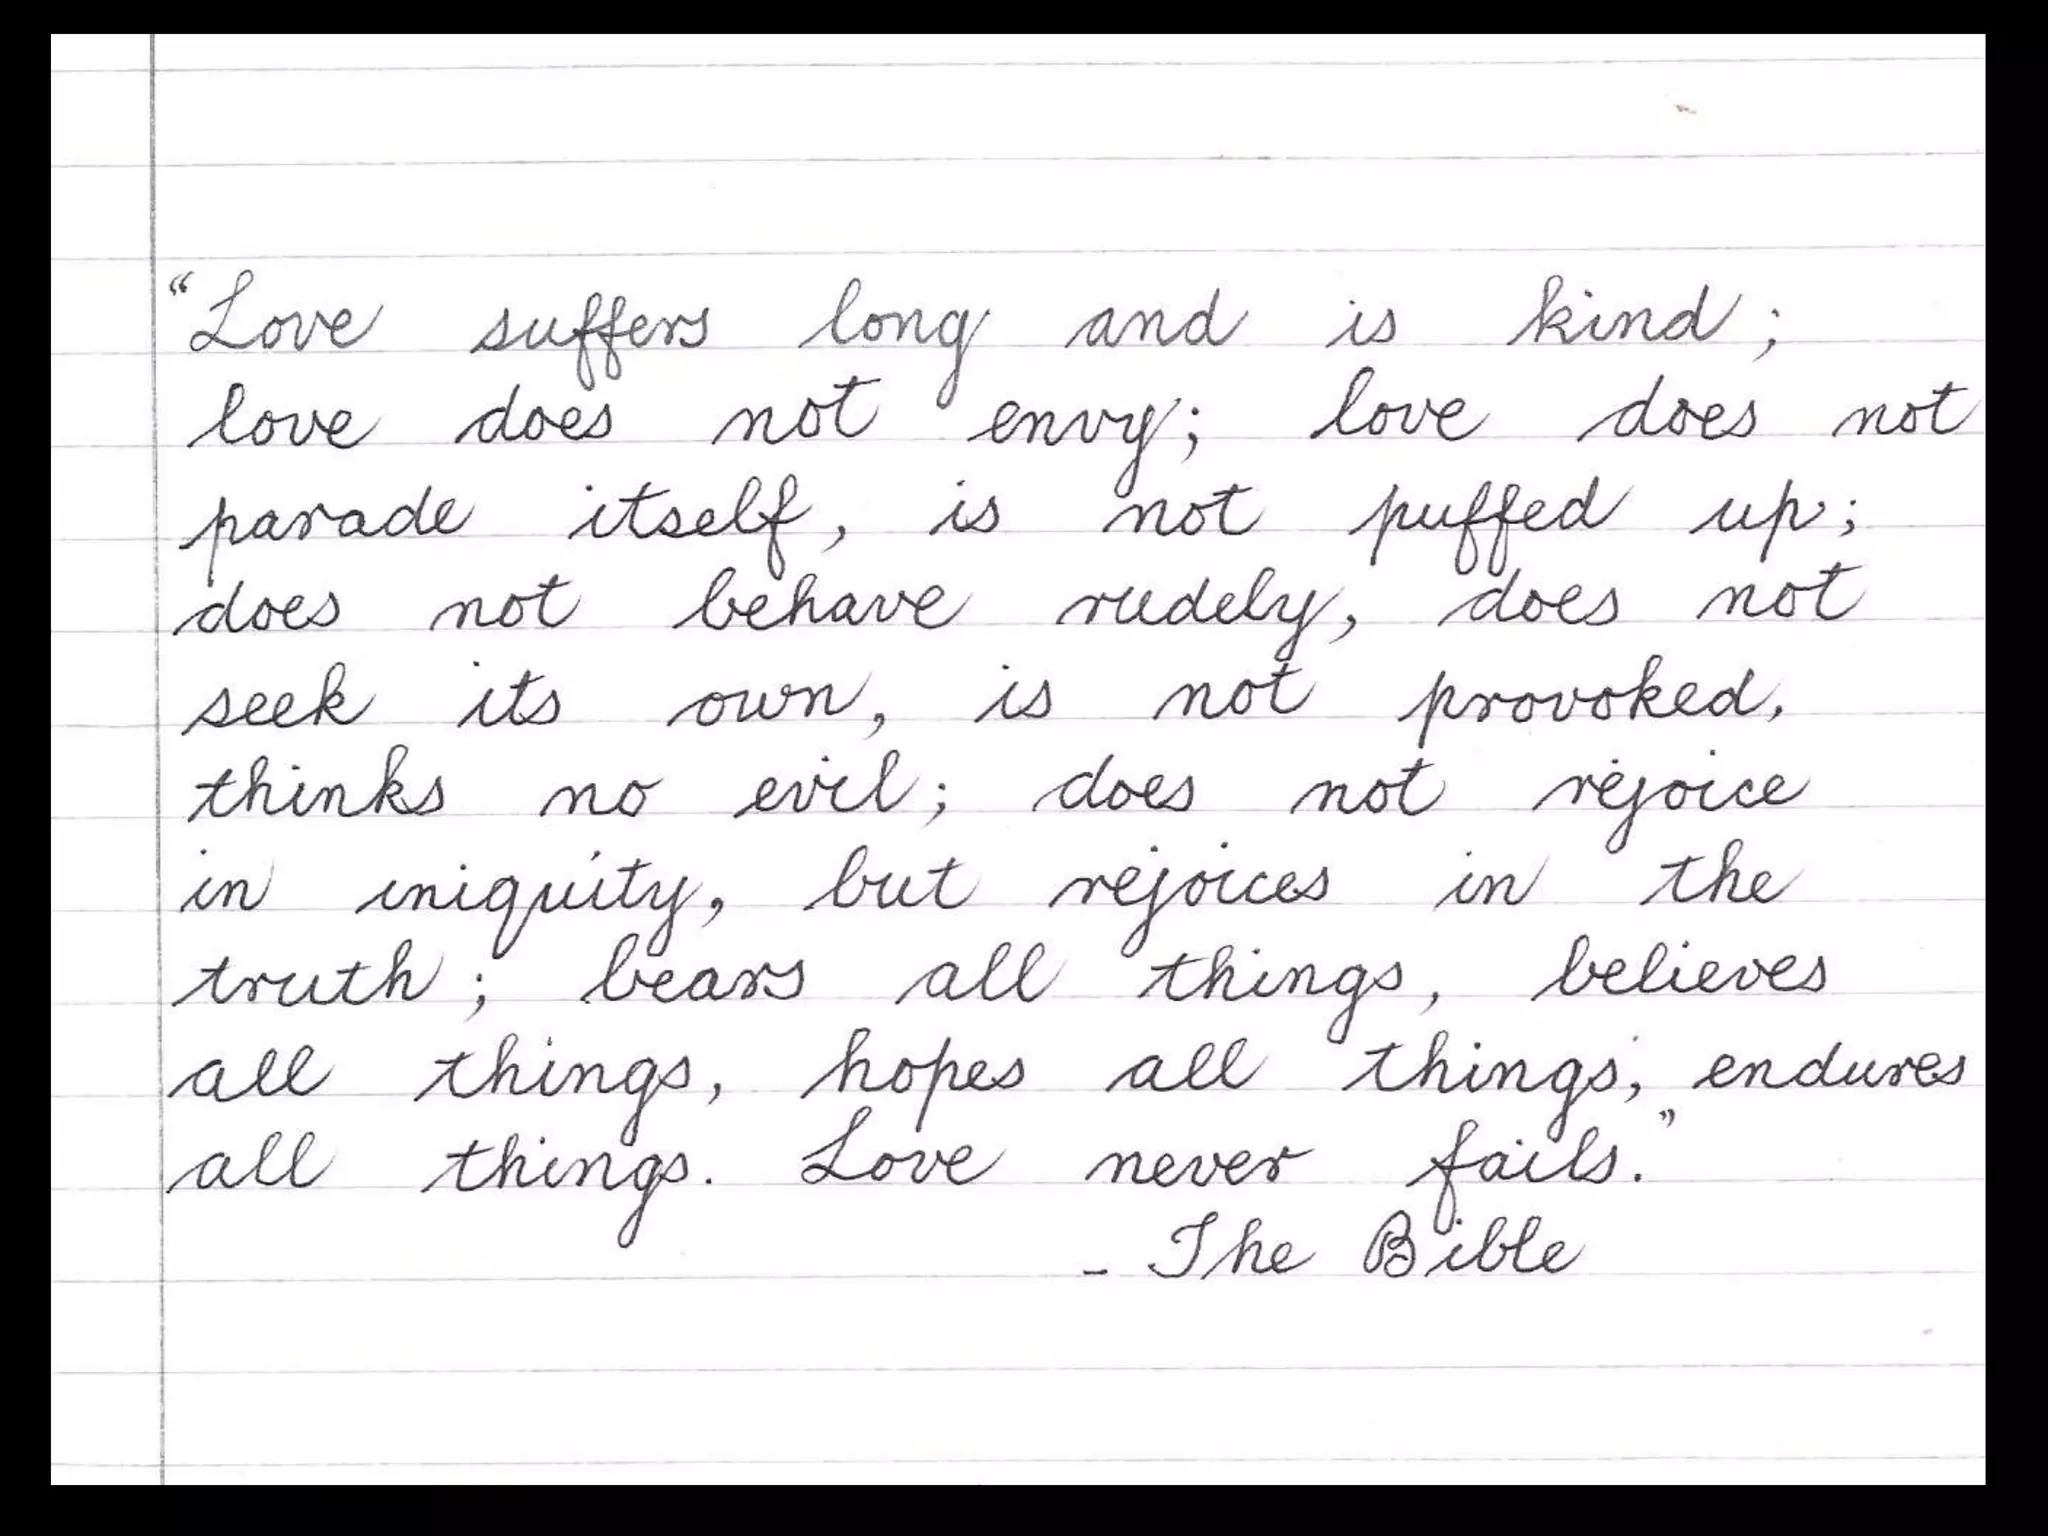 “Love suffers long and is kind;
love does not envy; love does not
parade itself, is not puffed up;
does not behave rudely, does not
seek its own, is not provoked,
thinks no evil; does not rejoice
in iniquity, but rejoices in the
truth; bears all things, believes
all things, hopes all things, endures
all things. Love never fails.”
- The Bible